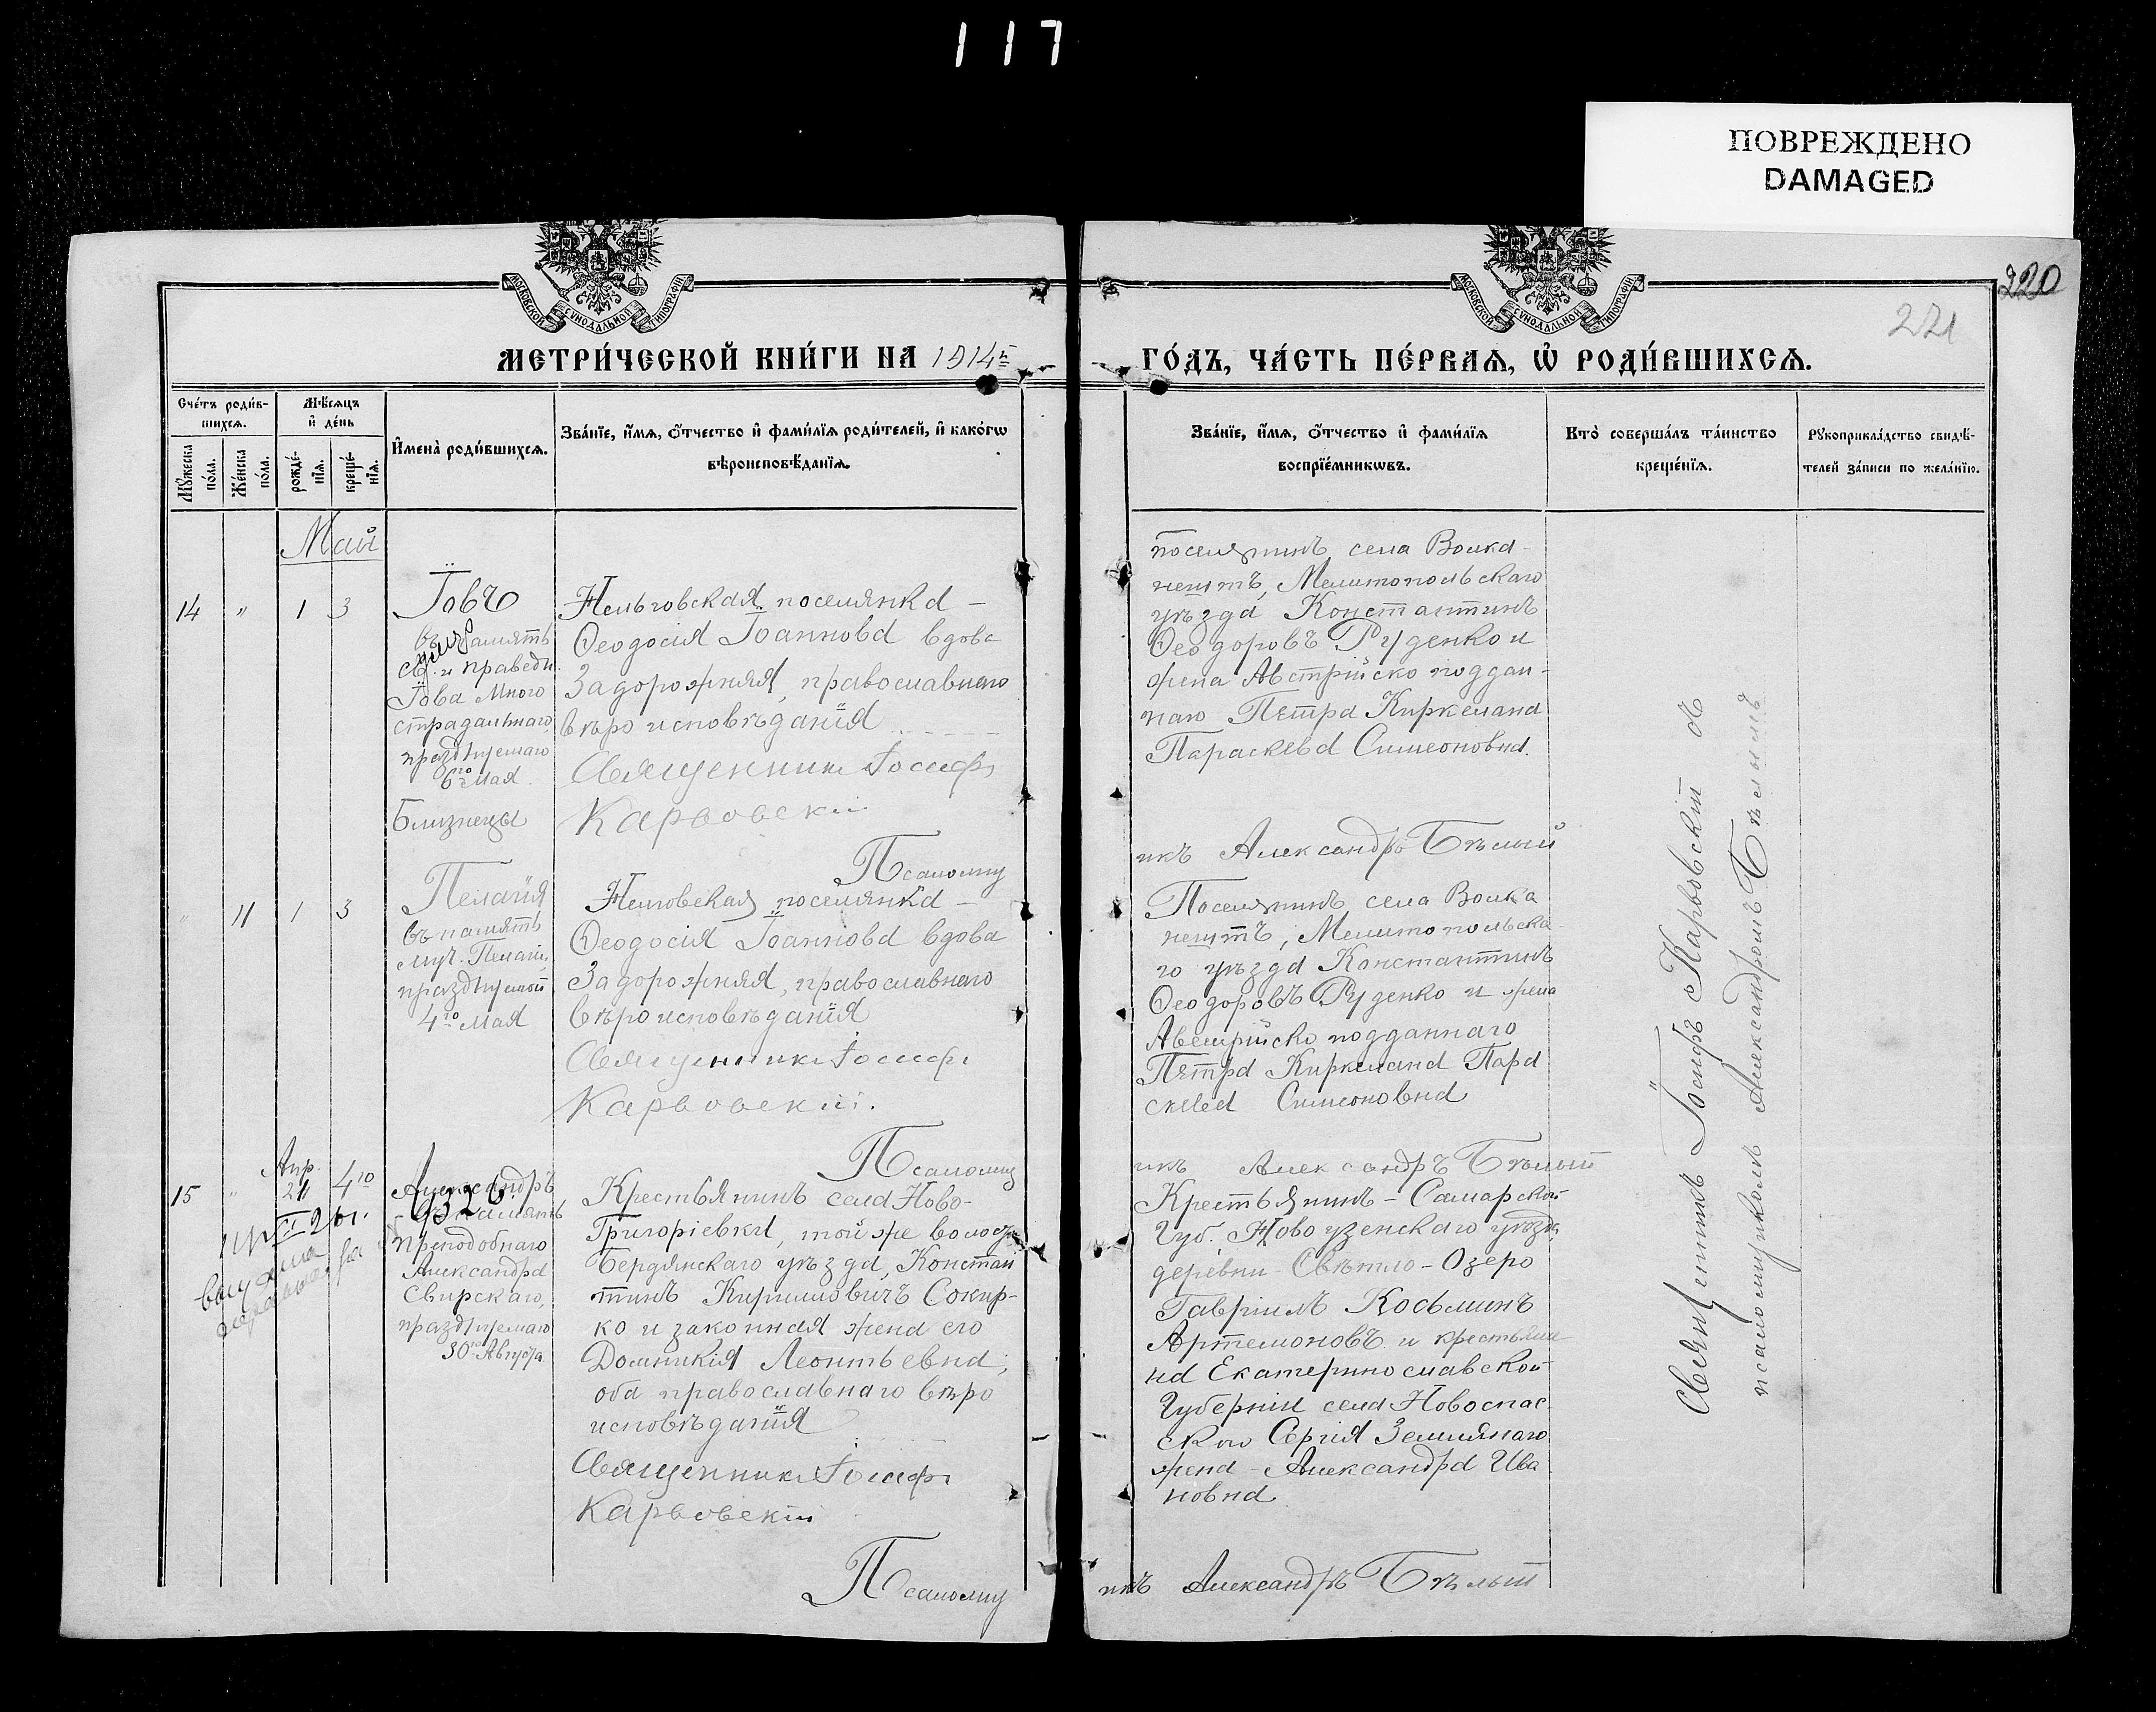 117
ПОВРЕЖДЕНО
DAMAGED
220
221
МОСКОВСКОЙ СУНОДАЛЬНОЙ ТИПОГРАФІИ
МОСКОВСКОЙ СУНОДАЛЬНОЙ ТИПОГРАФІИ
МЕТРИ́ЧЕСКОЙ КНИ́ГИ НА 1914й
ГО́ДЪ, ЧА́СТЬ ПЕ́РВАѦ, Ѡ҆ РОДИ́ВШИХСѦ.
Сче́тъ роди́в-
шихсѧ.
Мꙋ́жеска по́ла.
Же́нска по́ла.
Мѣ́сѧцъ
и҆ де́нь
рожде́-
нїѧ.
креще́-
нїѧ.
И҆мена̀ роди́вшихсѧ.
Зва́нїе, и҆́мѧ, ѻ҆́тчество и҆ фами́лїѧ роди́телей, и҆ како́гѡ
вѣроисповѣ́данїѧ.
Зва́нїе, и҆́мѧ, ѻ҆́тчество и҆ фами́лїѧ
воспрїе́мникѡвъ.
Кто̀ соверша́лъ та́инство
креще́нїѧ.
Рꙋкоприкла́дство свидѣ́-
телей за́писи по жела́нїю.
Май
14 " 1 3
Іовъ
въ память
св. и праведн.
Іова Много
страдальнаго,
празднуемаго
6го Мая.
Близнецы
Нельговская поселянка –
Ѳеодосія Іоаннова вдова
Задорожняя, православнаго
вѣроисповѣданія
Священникъ Іосифъ
Карвовскій
Псаломщ
поселянинъ села Волка-
нештъ, Мелитопольскаго
уѣзда Константинъ
Ѳеодоровъ Руденко и
жена Австрійско поддан-
наго Петра Киркелана
Параскева Симеоновна.
икъ Александръ Бѣлый
" 11 1 3
Пелагія
въ память
муч. Пелагіи,
празднуемой
4го Мая
Нельговская поселянка –
Ѳеодосія Іоаннова вдова
Задорожняя, православнаго
вѣроисповѣданія
Священникъ Іосифъ
Карвовскій.
Псаломщ
Поселянинъ села Волка
нештъ, Мелитопольска
го уѣзда Константинъ
Ѳеодоровъ Руденко и жена
Австрійско подданнаго
Петра Киркелана Пара
скева Симеоновна
икъ Александръ Бѣлый
15 " Апр. 28 4го
932 б.
Александръ,
въ память
преподобнаго
Александра
Свирскаго,
празднуемаго
30го Августа
Крестьянинъ села Ново-
Григоріевки, той же волости
Бердянскаго уѣзда, Констан
тинъ Кирилловичъ Сокир-
ко и законная жена его
Домникія Леонтьевна;
оба православнаго вѣро
исповѣданія
Священникъ Іосифъ
Карвовскій
Псаломщ
Крестьянинъ – Самарской
Губ. Новоузенскаго уѣзда,
деревни Свѣтло – Озеро
Гавріилъ Косьминъ
Артемоновъ и крестьяни
на Екатеринославской
Губерніи села Новоспас-
скаго Сергія Земляного
жена – Александра Ива
новна
икъ Александръ Бѣлый
Священникъ Іосифъ Карвовскій съ
псаломщикомъ Александромъ Бѣлымъ